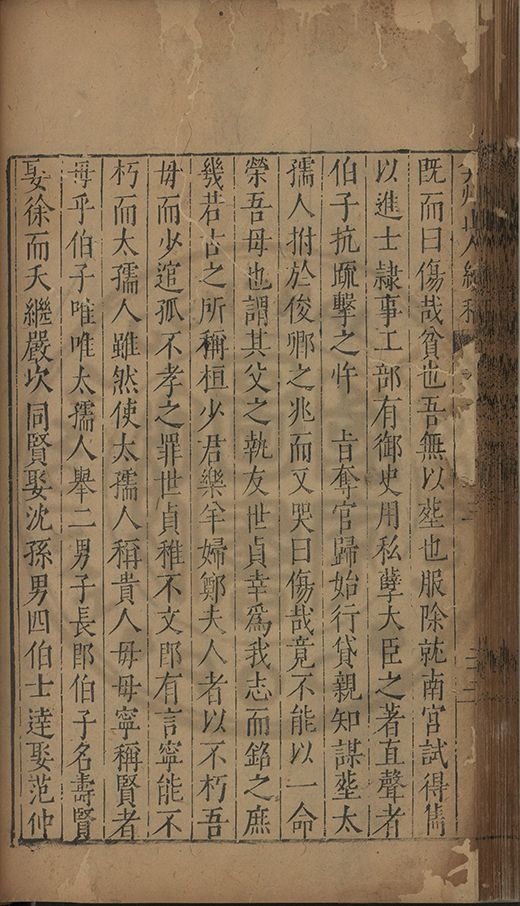 既而曰傷哉貧也吾無以塟也服除就南宮試得雋
以進士隷事工部有御史用私孽大臣之著直聲者
伯子抗疏擊之忤 旨奪官歸始行貸親知謀塟太
孺人拊於俊卿之兆而又哭曰傷哉竟不能以一命
榮吾母也謂其父之執友世貞幸爲我志而銘之庶
幾若古之所稱桓少君樂羊婦鄭夫人者以不朽吾
母而少逭孤不孝之罪世貞稚不文郎有言寧能不
朽而太孺人雖然使太孺人稱貴人母毋寧稱賢者
母乎伯子唯唯太孺人舉二男子長郎伯子名壽賢
娶徐而夭繼嚴次同賢娶沈孫男四伯士逹娶范仲